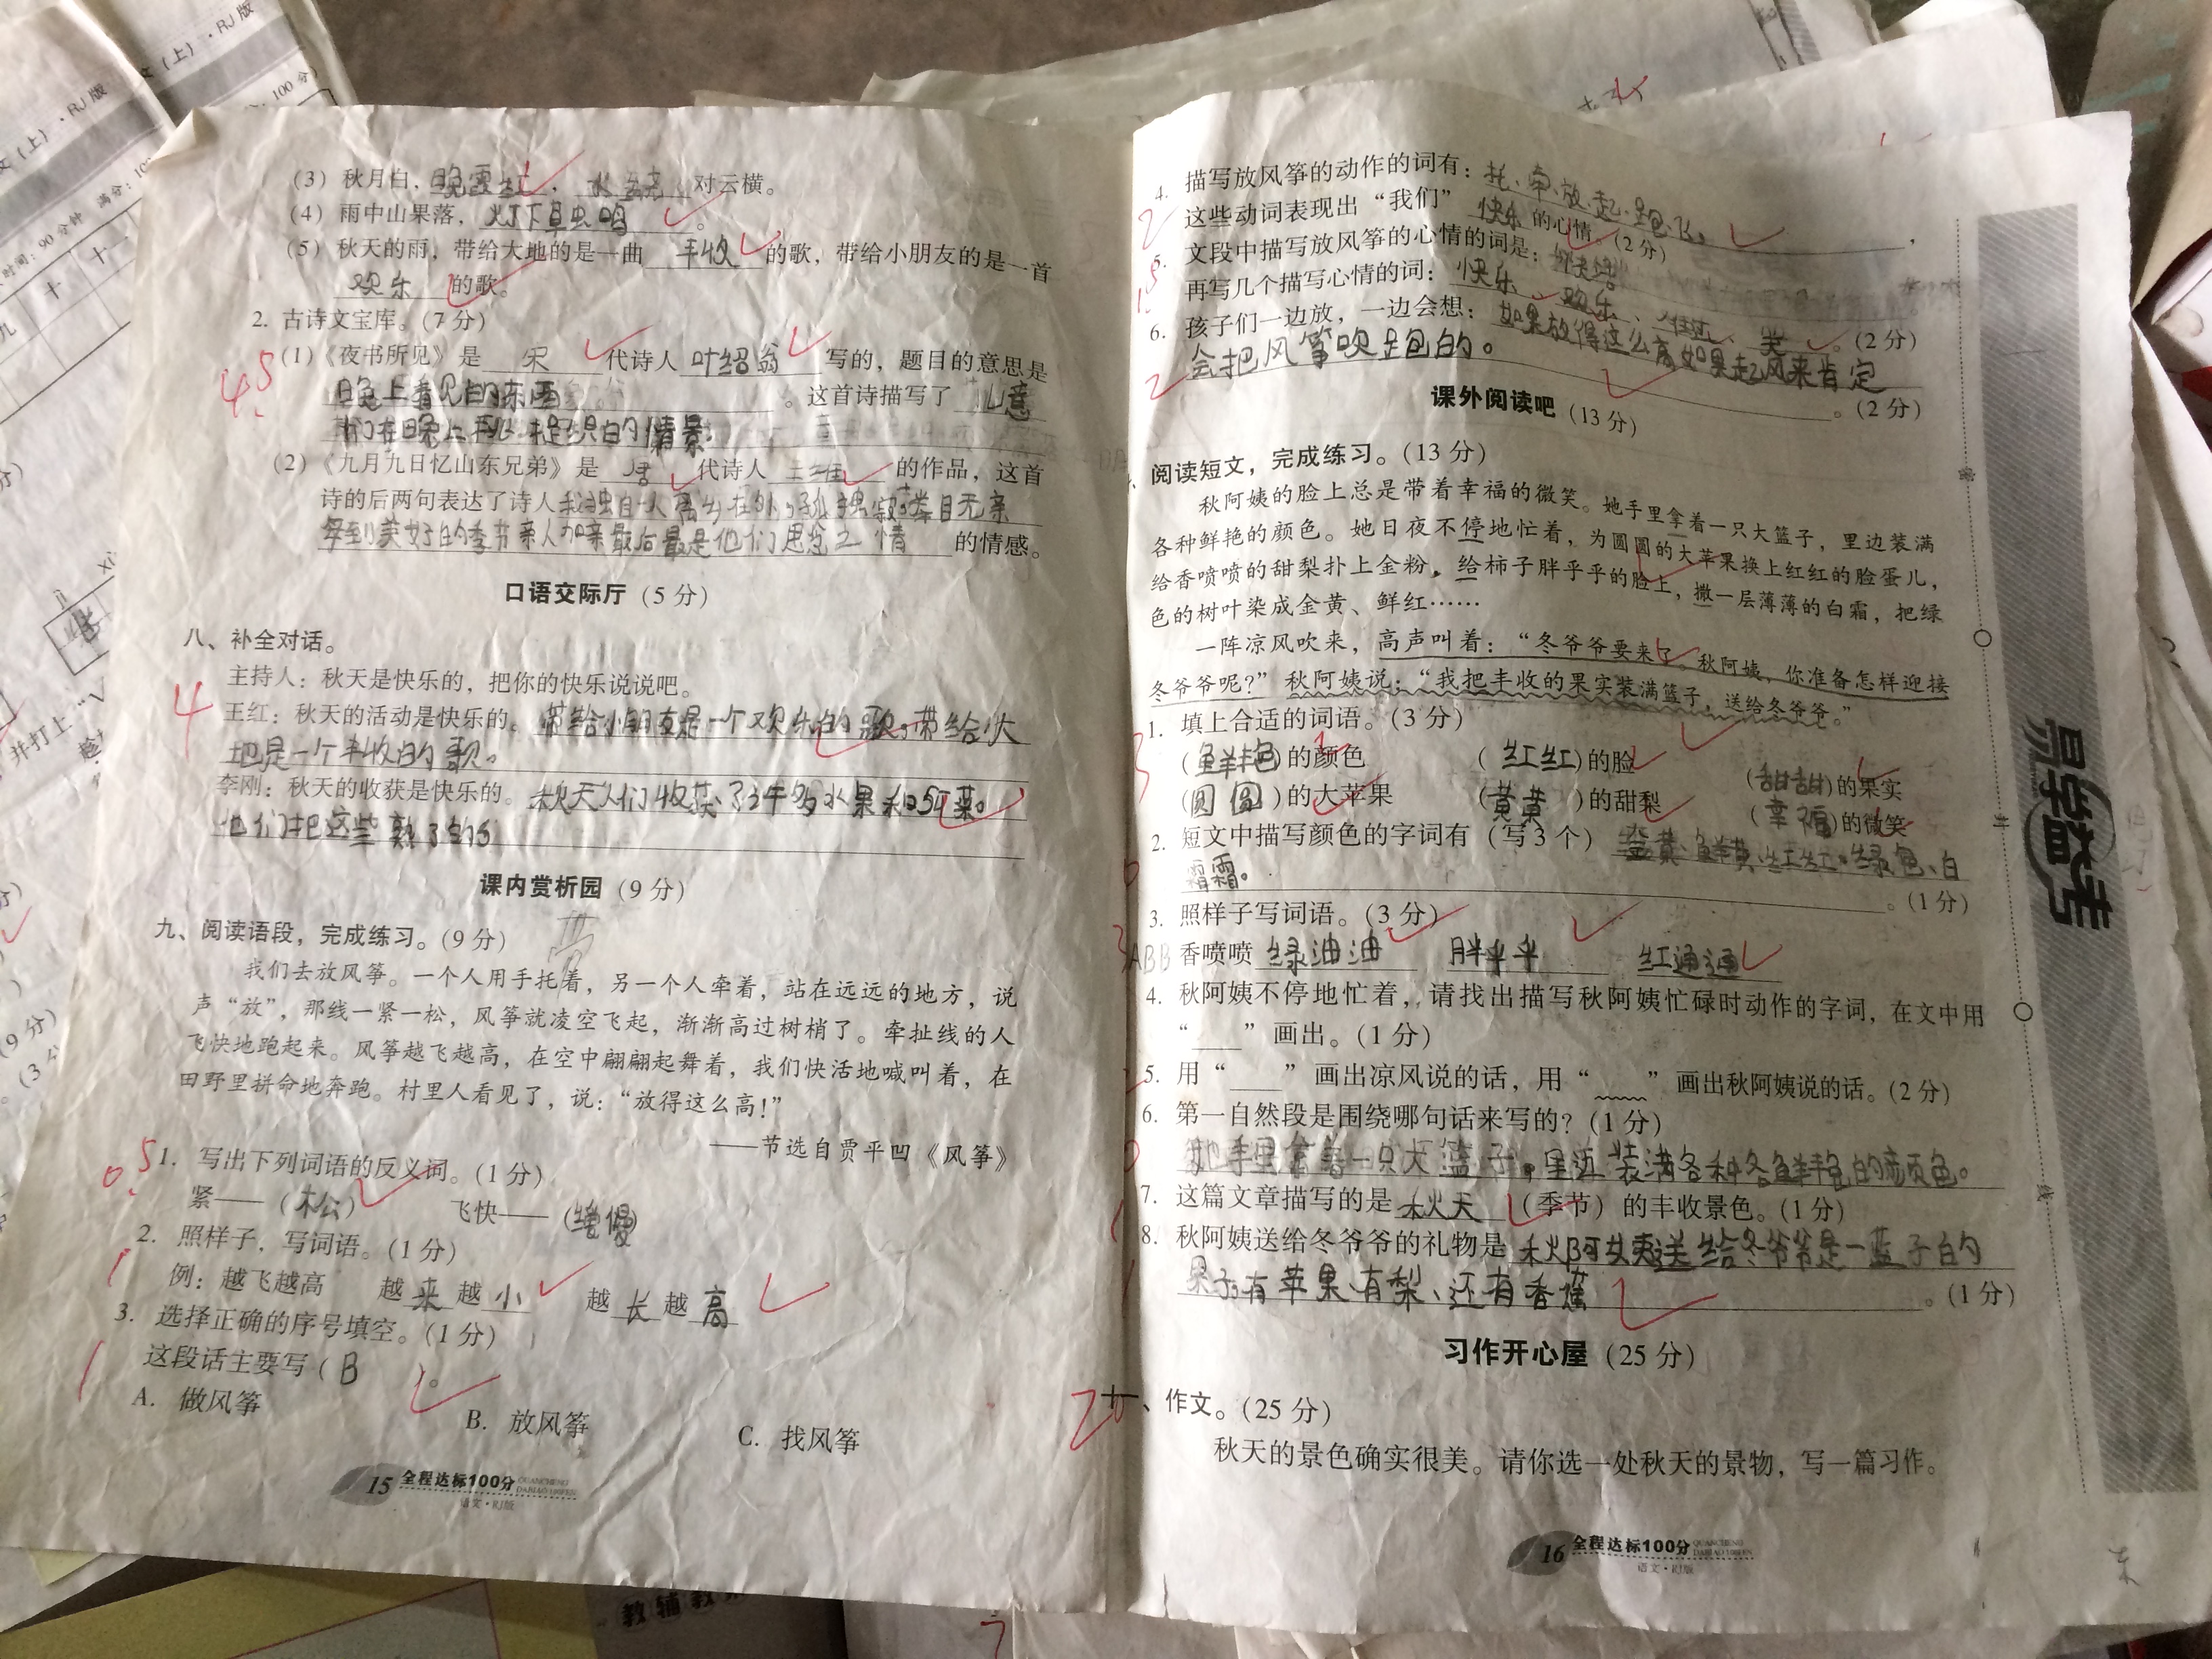 (3) 秋月白，晚霞红，水绕对云横。
(4) 雨中山果落，灯下草虫鸣。
(5) 秋天的雨，带给大地的是一曲丰收的歌，带给小朋友的是一首
欢乐的歌。
2. 古诗文宝库。(7 分)
(1)《夜书所见》是宋代诗人叶绍翁写的，题目的意思是
晚上看见的东西。这首诗描写了
们在晚上捉织的情景
(2)《九月九日忆山东兄弟》是唐代诗人王维的作品，这首
诗的后两句表达了诗人我独自一人离乡在外孤独
每到美好的季节亲人加亲最后最是他们思念之情的情感。
口语交际厅 (5 分)
八、补全对话。
主持人：秋天是快乐的，把你的快乐说说吧。
4
王红：秋天的活动是快乐的。带给小朋友是一个欢乐的歌。带给大
地是一个丰收的歌。
李刚：秋天的收获是快乐的。秋天人们收获了许多水果和5可菜。
他们把这些熟了的
课内赏析园 (9 分)
九、阅读语段，完成练习。(9 分)
我们去放风筝。一个人用手托着，另一个人牵着，站在远远的地方，说
声“放”，那线一紧一松，风筝就凌空飞起，渐渐高过树梢了。牵扯线的人
飞快地跑起来。风筝越飞越高，在空中翩翩起舞着，我们快活地喊叫着，在
田野里拼命地奔跑。村里人看见了，说：“放得这么高！”
——节选自贾平凹《风筝》
1. 写出下列词语的反义词。(1 分)
紧——(松) 飞快——(慢)
2. 照样子，写词语。(1 分)
例：越飞越高 越来越小 越长越高
3. 选择正确的序号填空。(1 分)
这段话主要写(B)。
A. 做风筝 B. 放风筝 C. 找风筝
15 全程达标100分 QUANCHENG DABIAO 100FEN
语文·RJ版
4. 描写放风筝的动作的词有：托、牵、放、起、跑、飞，
这些动词表现出“我们”快乐的心情。(2 分)
5. 文段中描写放风筝的心情的词是：快活
再写几个描写心情的词：快乐、欢乐、、笑。(2 分)
6. 孩子们一边放，一边会想：如果放得这么高如果起风来肯定
会把风筝吹跑的。
。(2 分)
课外阅读吧 (13 分)
阅读短文，完成练习。(13 分)
秋阿姨的脸上总是带着幸福的微笑。她手里拿着一只大篮子，里边装满
各种鲜艳的颜色。她日夜不停地忙着，为圆圆的大苹果换上红红的脸蛋儿，
给香喷喷的甜梨扑上金粉，给柿子胖乎乎的脸上，撒一层薄薄的白霜，把绿
色的树叶染成金黄、鲜红……
一阵凉风吹来，高声叫着：“冬爷爷要来了。秋阿姨，你准备怎样迎接
冬爷爷呢？”秋阿姨说：“我把丰收的果实装满篮子，送给冬爷爷。”
1. 填上合适的词语。(3 分)
(鲜艳)的颜色 (红红)的脸 (甜甜)的果实
(圆圆)的大苹果 (黄黄)的甜梨 (幸福)的微笑
2. 短文中描写颜色的字词有 (写 3 个) 金黄、鲜黄、红红、绿色、白
霜霜。
。(1 分)
3. 照样子写词语。(3 分)
ABB 香喷喷 绿油油 胖乎乎 红通通
4. 秋阿姨不停地忙着，请找出描写秋阿姨忙碌时动作的字词，在文中用
“___”画出。(1 分)
5. 用“___”画出凉风说的话，用“﹏﹏”画出秋阿姨说的话。(2 分)
6. 第一自然段是围绕哪句话来写的？(1 分)
她手里拿着一只大篮子，里边装满各种各鲜艳的颜色。
7. 这篇文章描写的是秋天(季节) 的丰收景色。(1 分)
8. 秋阿姨送给冬爷爷的礼物是秋阿姨送给冬爷爷是一蓝子的
果子，有苹果、有梨、还有香蕉
。(1 分)
习作开心屋 (25 分)
20
十一、作文。(25 分)
秋天的景色确实很美。请你选一处秋天的景物，写一篇习作。
16 全程达标100分 QUANCHENG DABIAO 100FEN
语文·RJ版
易学益考
密
封
线